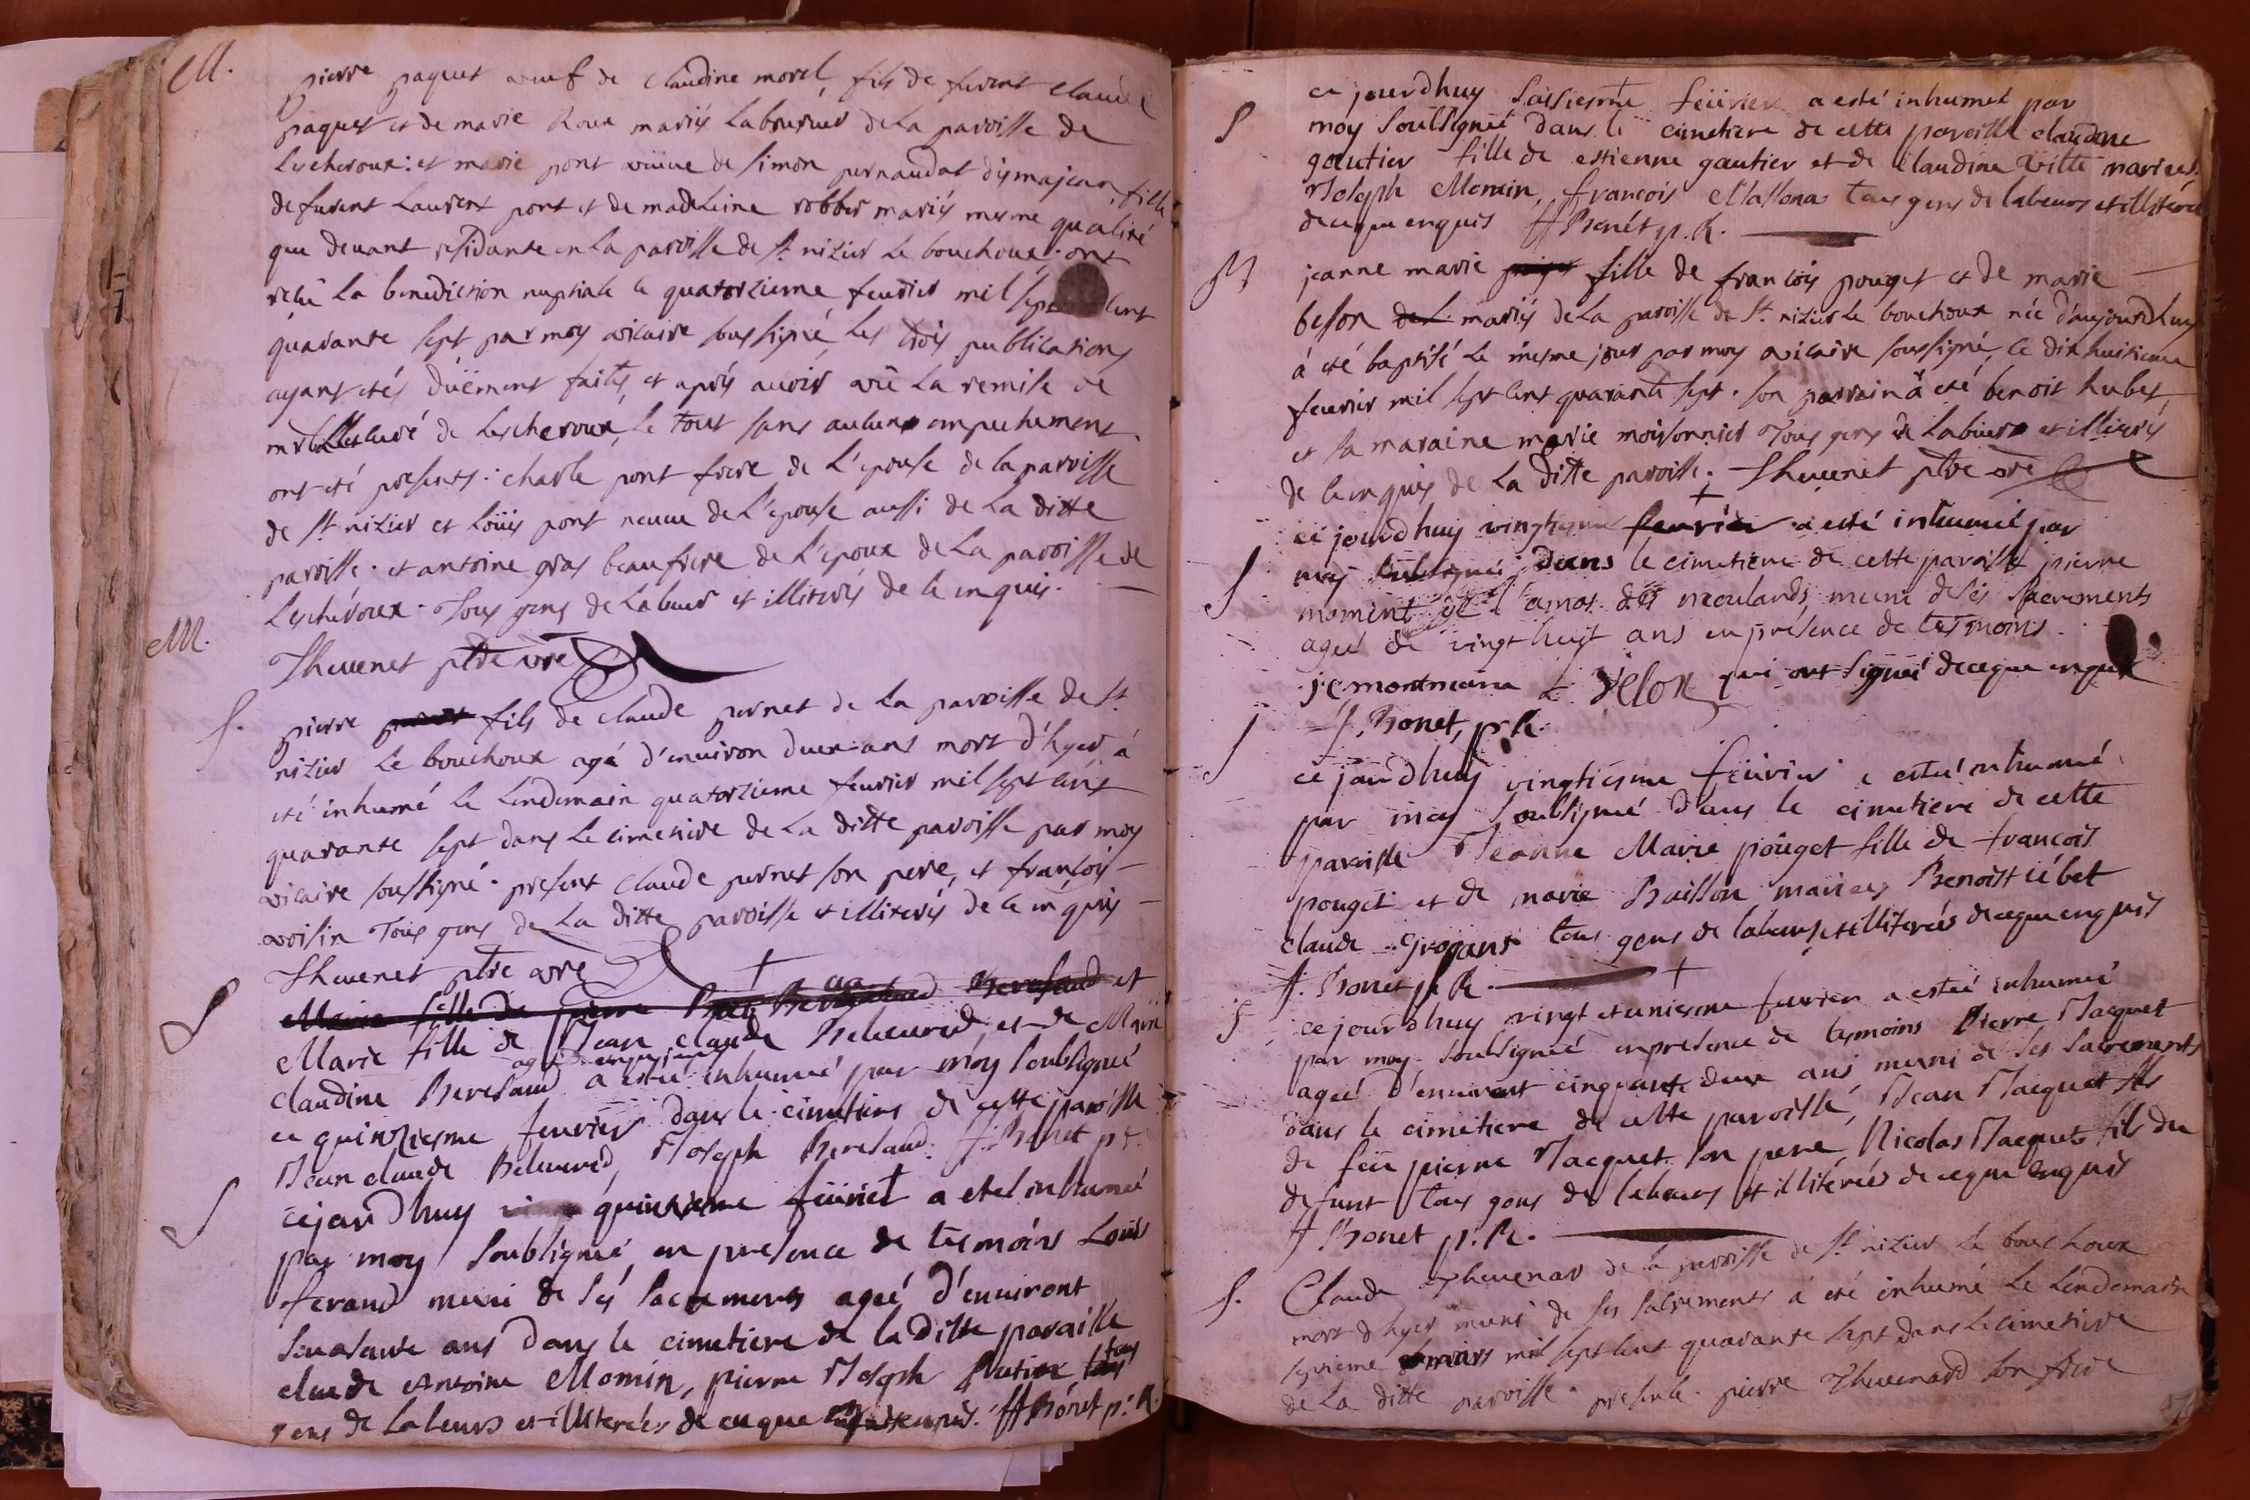 M.
pierre paquet veuf de claudine morel, fils de furent claude
paquet et de marie Roux mariés laboureurs de La paroisse de
Lescheroux: et marie pont veuve de simon pernaudat dismajeur, fille
de furent Laurent pont et de madeleine robber mariés mesme qualité
que devant residante en La paroisse de st. nizier Le bouchoux. ont
reçu La benediction nuptiale le quatorzieme feuvrier mil sept cent
quarante sept par moy vicaire soussigné, Les trois publications
ayant etés düement faites, et après auoir vû La remise de
mr curé de Lescheroux, Le tout sans aucun empechement.
ont eté presents: charle pont frere de L'epouse de la paroisse
de st. nizier et Loüis pont neveu de L'epouse aussi de La ditte
paroisse. et antoine gras beaufrere de L'epoux de La paroisse de
Lescheroux. Tous gens de Labeur et illiterés de ce inquis.
M.
Thevenet ptre vre
S.
pierre fils de claude pernet de La paroisse de st.
nizier Le bouchoux agé d'environ deux ans mort d'hyer à
eté inhumé Le Lendemain quatorzieme feuvrier mil sept cent
quarante sept dans Le cimetiere de La ditte paroisse par moy
vicaire soussigné. present claude pernet son pere, et françois
voisin Tous gens de La ditte paroisse et illiterés de ce inquis
Thevenet ptre vre
S
Marie fille de pierre et
Marie fille de Jean claude Beleuvred, et de Marie
claudine Beresaud a estée inhumé par moy soubsigné
ce quinziesme feuvrier dans le cimetiere de cette paroisse
Jean claude Beleuvred, Joseph Beresaud. f. Bonet p r.
S
cejourdhuy quinzieme feüvrier a esté inhumé
par moy soubsigné, en presence de tesmoins Louis
ferand muni de sés sacrements agé d'environt
soixsante ans dans le cimetiere de la ditte paroisse
claude Antoine Momin, pierre Joseph tous
gens de labeurs et illiterées de ceque enquis. ff Bonet p. R.
S
ce jourdhuy saisiesme feüvrier a esté inhumé par
moy soubsigné dans le cimetiere de cette paroisse claudine
gautier fille de estienne gautier et de claudine vitte mariees.
Joseph Momin, françois Massona tous gens de labeurs et illiterés
deceque enquis ff Bonet p. R.
B
jeanne marie fille de françois pouget et de marie
besson mariés de La paroisse de st. nizier Le bouchoux née d'aujourdhuy
à eté baptisé Le mesme jour par moy vicaire soussigné, Le dix huitieme
feuvrier mil sept cent quarante sept. son parrain a eté benoit hubet
et sa maraine marie moisonnier Tous gens de Labeur et illiterés
de ce inquis de La ditte paroisse. Thevenet ptre vre
S
ce jourdhuy vingtiesme feuvrier a esté inhumé par
moy soubsigné dans le cimetiere de cette paroisse pierre
moment de l'amas des moulards muni de sés sacrements
agé de vingt huit ans en présence de tesmoins.
je montmain L velon qui ont signé deceque enquis
f. Bonet, p R.
S
ce jourdhuy vingtiesme feüvrier a esté inhumé
par moy soubsigné dans le cimetiere de cette
paroisse Jeanne Marie pouget fille de francois
pouget et de marie Baisson mariees Benoist iébet
claude gropant tous gens de labeurs et illiterés deceque enquis
f. Bonet p. R.
S
ce jourdhuy vingt et uniesme feuvrier a esté inhumé
par moy soubsigné en presence de tesmoins Pierre Jacquet
agé d'environt cinquante deux ans muni de ses sacrements
dans le cimetiere de cette paroisse, Jean Jacquet fils
de feu pierre Jacquet son pere Nicolas Jacquet fils du
defunt tous gens de labeurs et illiterés deceque enquis
f Bonet p. R.
S.
Claude Thevenar de la paroisse de st nizier Le bouchoux
mort d'hyer muni de ses sacrements à eté inhumé Le Lendemain
septieme mars mil sept cent quarante sept dans Le cimetiere
de La ditte paroisse. presents pierre Thevenard son frere